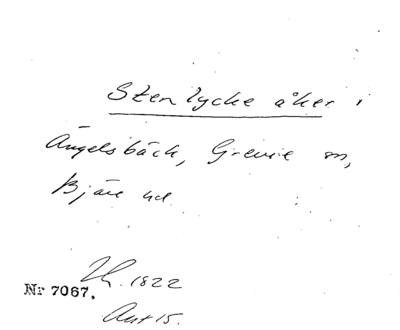 Stenlycke åker i
Ängelsbäck, Grevie sn,
Bjäre hd
Th. 1822
Nr 7067.
Ant 15.